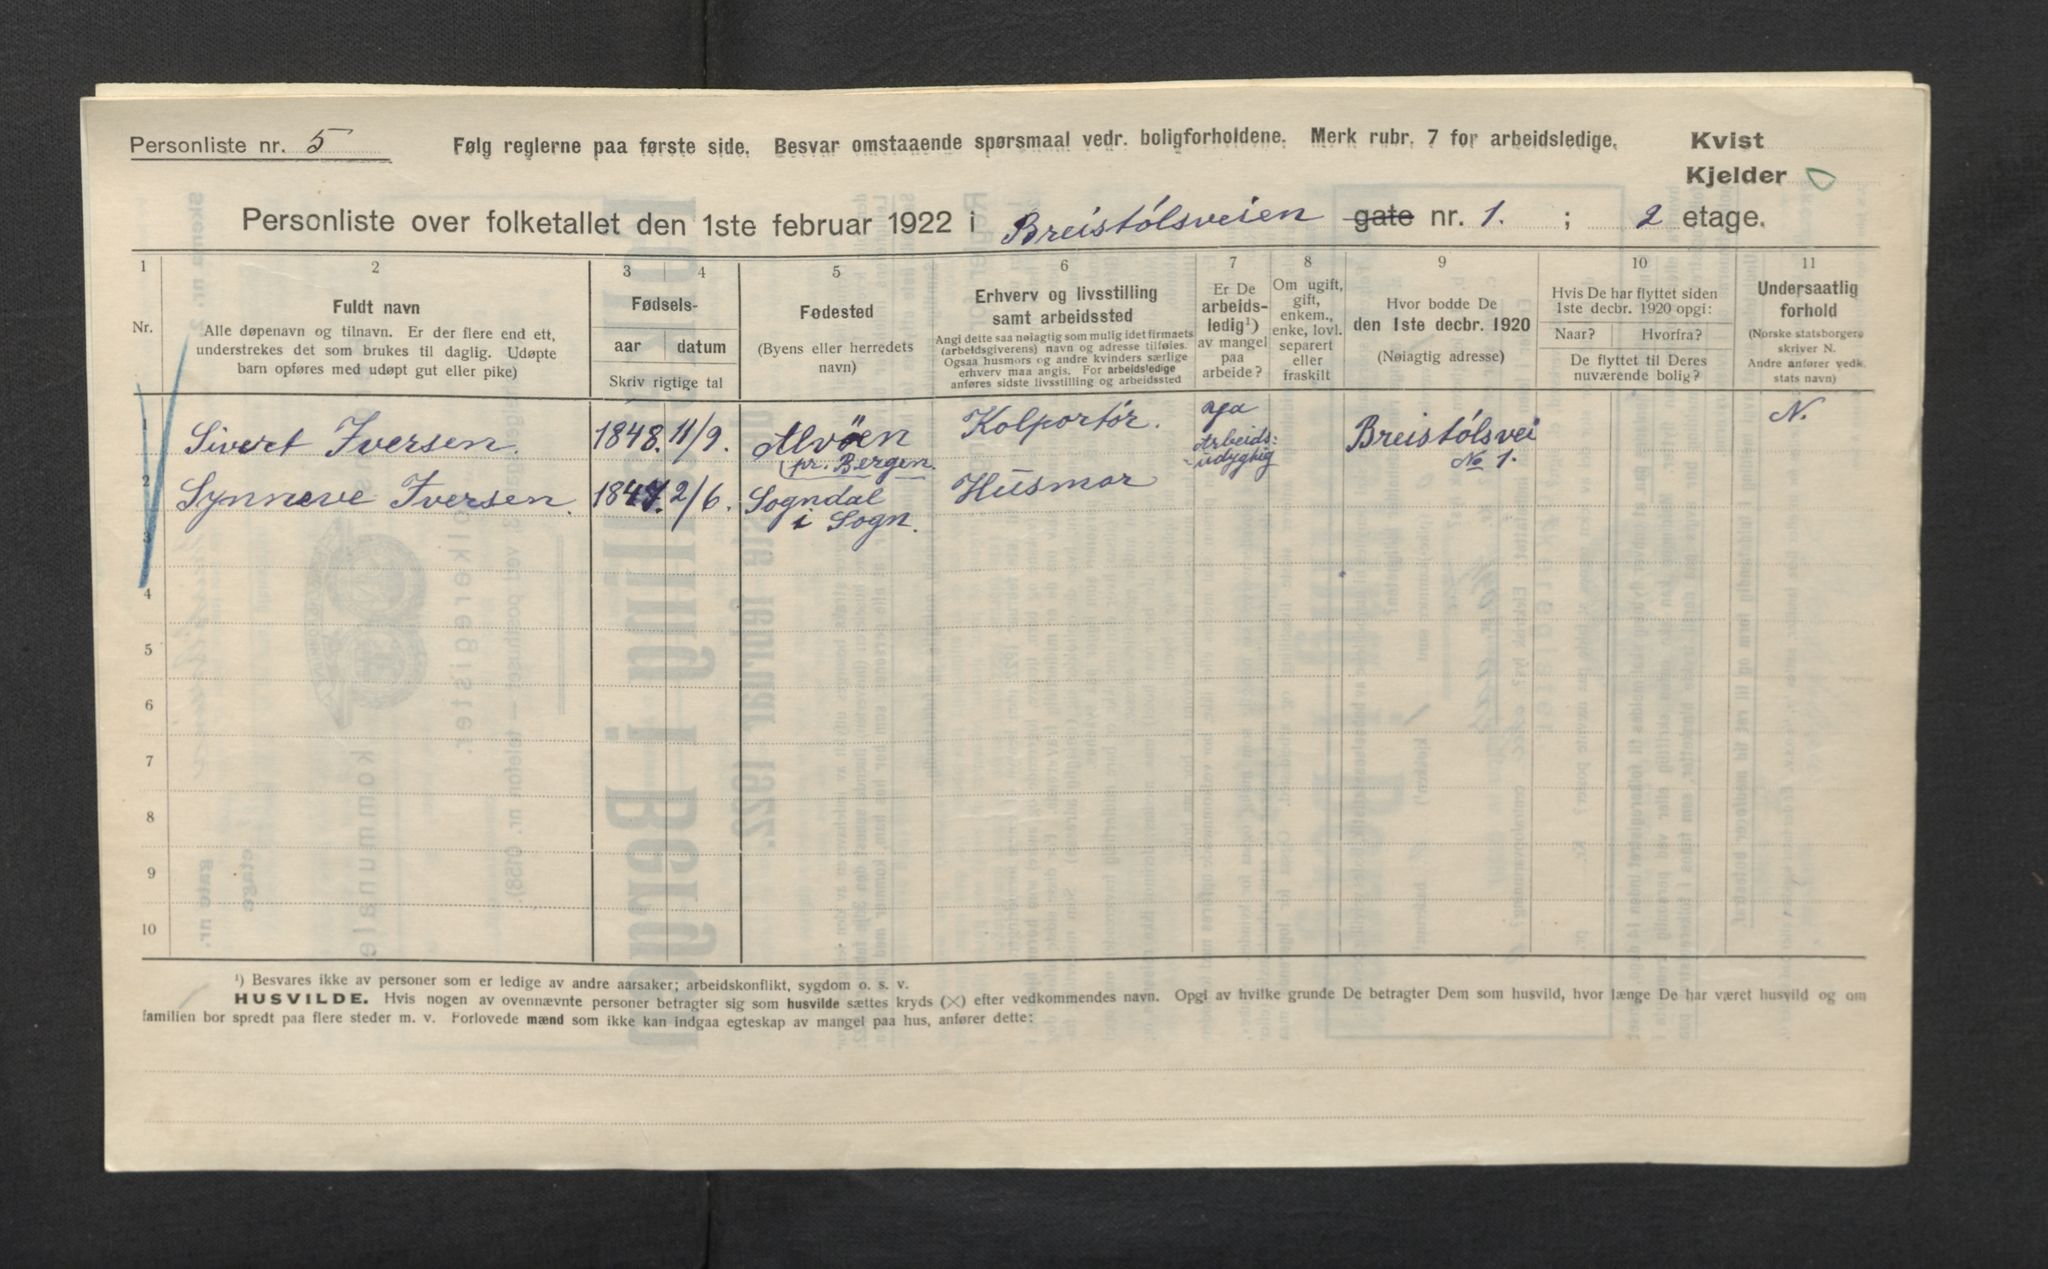 Personliste nr. 5
Følg reglerne paa første side. Besvar omstaaende spørsmaal vedr. boligforholdene. Merk rubr. 7 for arbeidsledige.
Kvist
Kjelder
Personliste over folketallet den 1ste februar 1922 i Breistólsveien gate nr. 1. ; 2 etage.
1 2 3 4 5 6 7 8 9 10 11
Nr.
Fuldt navn
Alle døpenavn og tilnavn. Er der flere end ett,
understrekes det som brukes til daglig. Udøpte
barn opføres med udøpt gut eller pike)
Fødsels-
aar datum
Skriv rigtige tal
Fødested
(Byens eller herredets
navn)
Erhverv og livsstilling
samt arbeidssted
Angi dette saa nøiagtig som mulig idet firmaets
(arbeidsgiverens) navn og adresse tilføies.
Ogsaa husmors og andre kvinders særlige
erhverv maa angis. For arbeidsledige
anføres sidste livsstilling og arbeidssted
Er De
arbeids-
ledig¹)
av mangel
paa
arbeide?
Om ugift,
gift,
enkem.,
enke, lovl.
separert
eller
fraskilt
Hvor bodde De
den 1ste decbr. 1920
(Nøiagtig adresse)
Hvis De har flyttet siden
1ste decbr. 1920 opgi:
Naar? Hvorfra?
De flyttet til Deres
nuværende bolig?
Undersaatlig
forhold
(Norske statsborgere
skriver N.
Andre anfører vedk.
stats navn)
1 Sivert Iversen. 1848. 11/9. Alvöen Kolportör. ya Breistólsvei N.
(pr. Bergen. Arbeids- udygtig No 1.
2 Synneve Iversen. 1847. 2/6. Sogndal Husmor
i Sogn.
3
4
5
6
7
8
9
10
¹) Besvares ikke av personer som er ledige av andre aarsaker; arbeidskonflikt, sygdom o. s. v.
HUSVILDE. Hvis nogen av ovennævnte personer betragter sig som husvilde sættes kryds (×) efter vedkommendes navn. Opgi av hvilke grunde De betragter Dem som husvild, hvor længe De har været husvild og om
familien bor spredt paa flere steder m. v. Forlovede mænd som ikke kan indgaa egteskap av mangel paa hus, anfører dette: